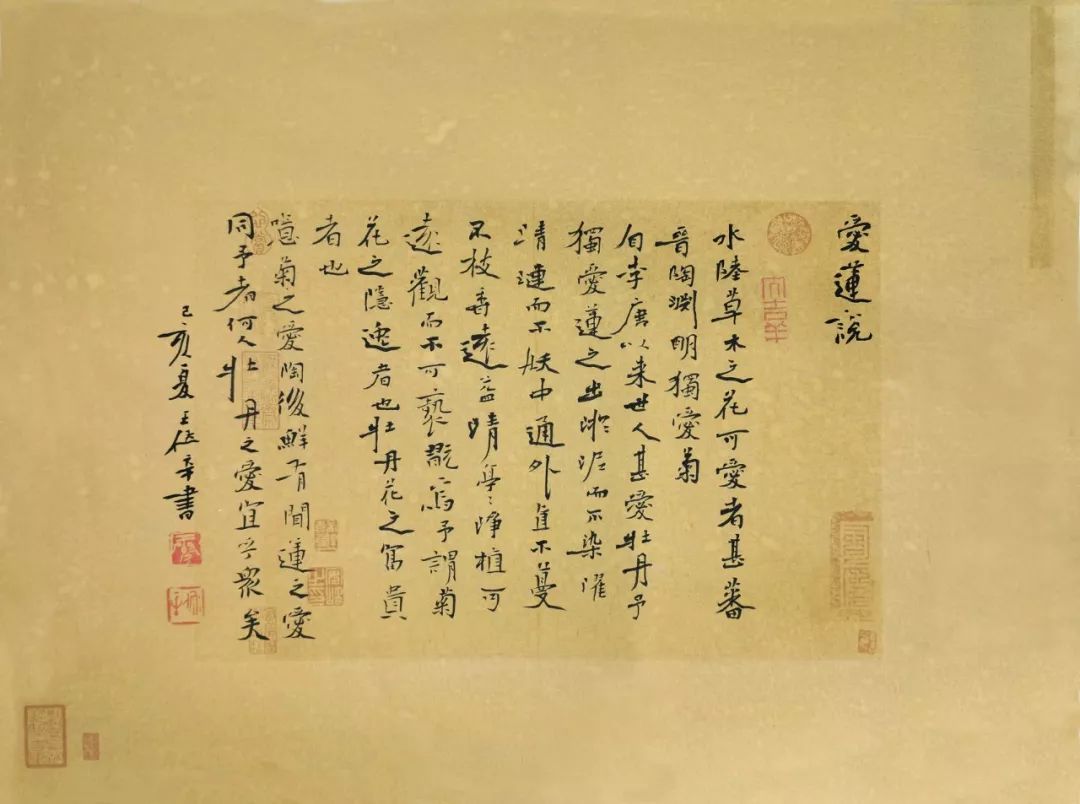 愛蓮說
大吉羊
水陸草木之花可愛者甚蕃
晉陶淵明獨愛菊
自李唐以来世人甚愛牡丹予
獨愛蓮之出淤泥而不染濯
清漣而不妖中通外直不蔓
不枝香遠益清亭〻淨植可
遠觀而不可褻翫焉予謂菊
花之隱逸者也牡丹花之富貴
者也
噫菊之愛陶後鮮有聞蓮之愛
同予者何人牡丹之愛宜乎眾矣
己亥夏王辛書